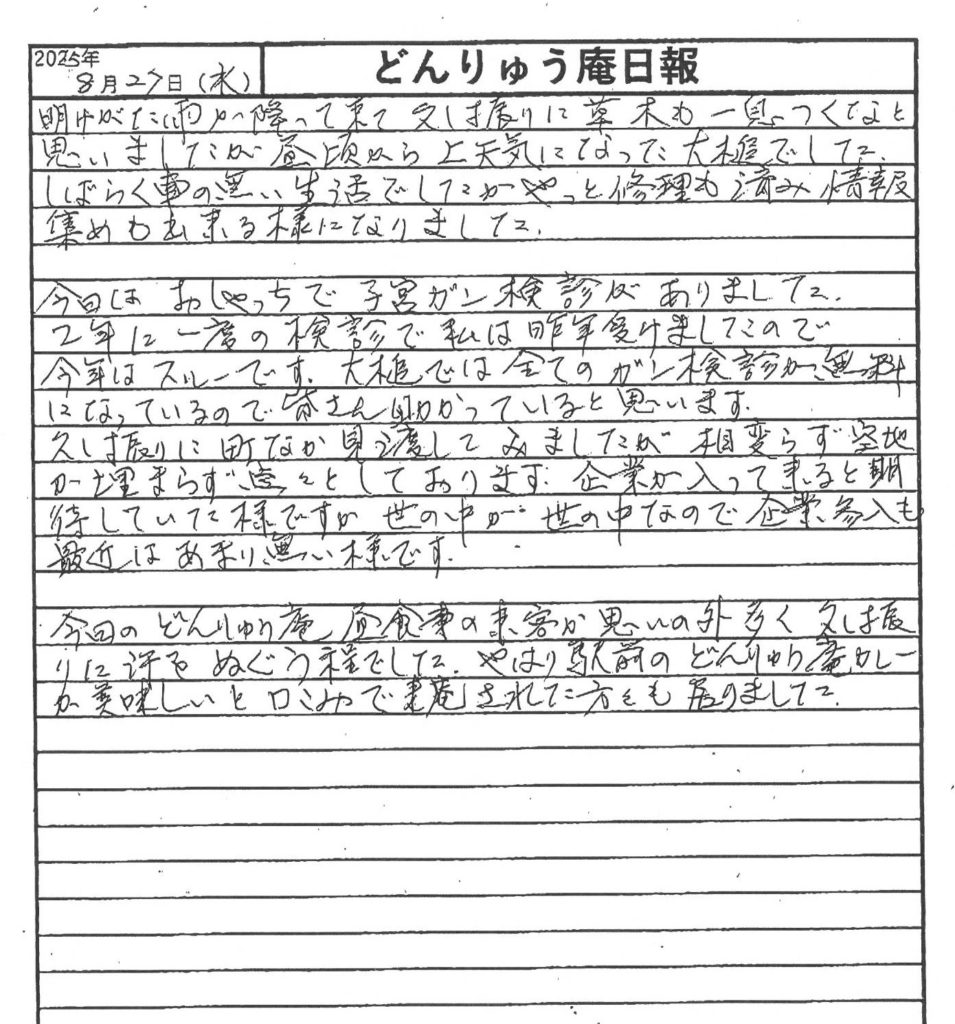 2025年
8月27日(水)
どんりゅう庵日報
明けがた雨が降って来て久し振りに草木も一息つくなと
思いましたが昼頃から上天気になった大槌でした。
しばらく車の無い生活でしたがやっと修理も済み情報
集めも出来る様になりました。
今日はおしゃっちで子宮ガン検診がありました。
2年に一度の検診で私は昨年受けましたので
今年はスルーです。大槌では全てのガン検診が無料
になっているので皆さん助かっていると思います。
久し振りに町なか見渡してみましたが相変らず空地
が埋まらず点々としております。企業が入って来ると期
待していた様ですが世の中が世の中なので企業参入も
最近はあまり無い様です。
今日のどんりゅう庵昼食事の来客が思いの外多く久し振
りに汗をぬぐう程でした。やはり駅前のどんりゅう庵カレー
が美味しいと口こみで来庵された方々も居りました。